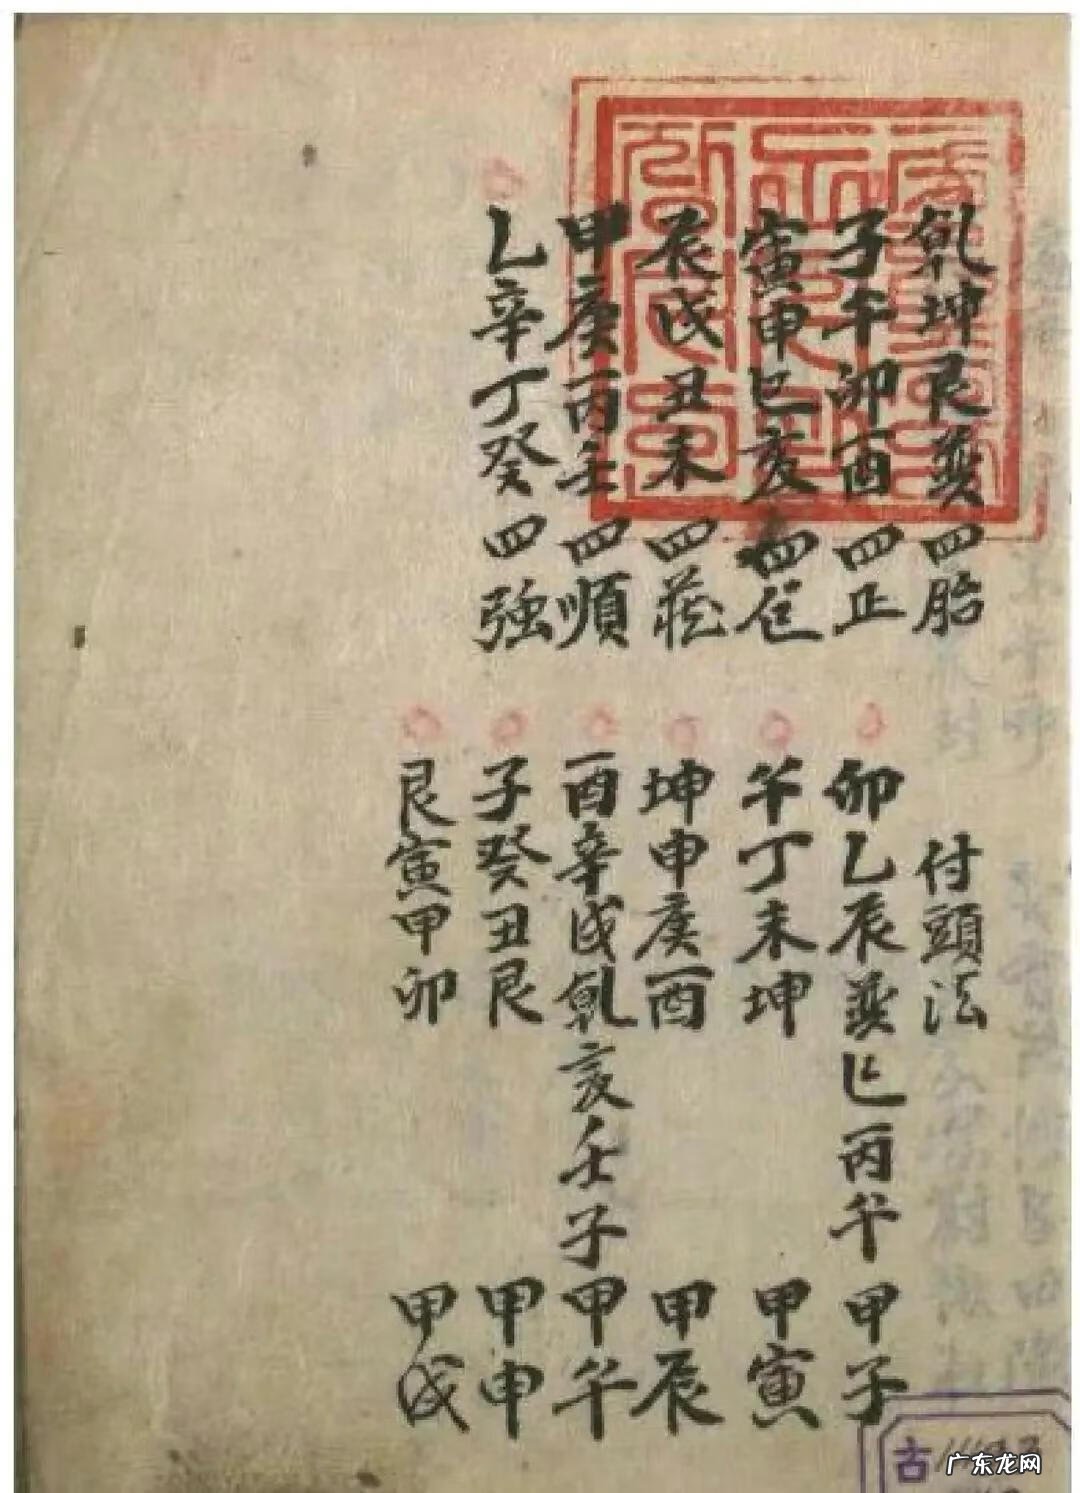 乹坤艮巽四胎
子午卯酉四正
寅申巳亥四包
辰戌丑未四莊
甲庚丙壬四順
乙辛丁癸四強
付頭法
卯乙辰巽巳丙午 甲子
午丁未坤 甲寅
坤申庚酉 甲辰
酉辛戌乹亥壬子 甲午
子癸丑艮 甲申
艮寅甲卯 甲戌
古
广东龙网